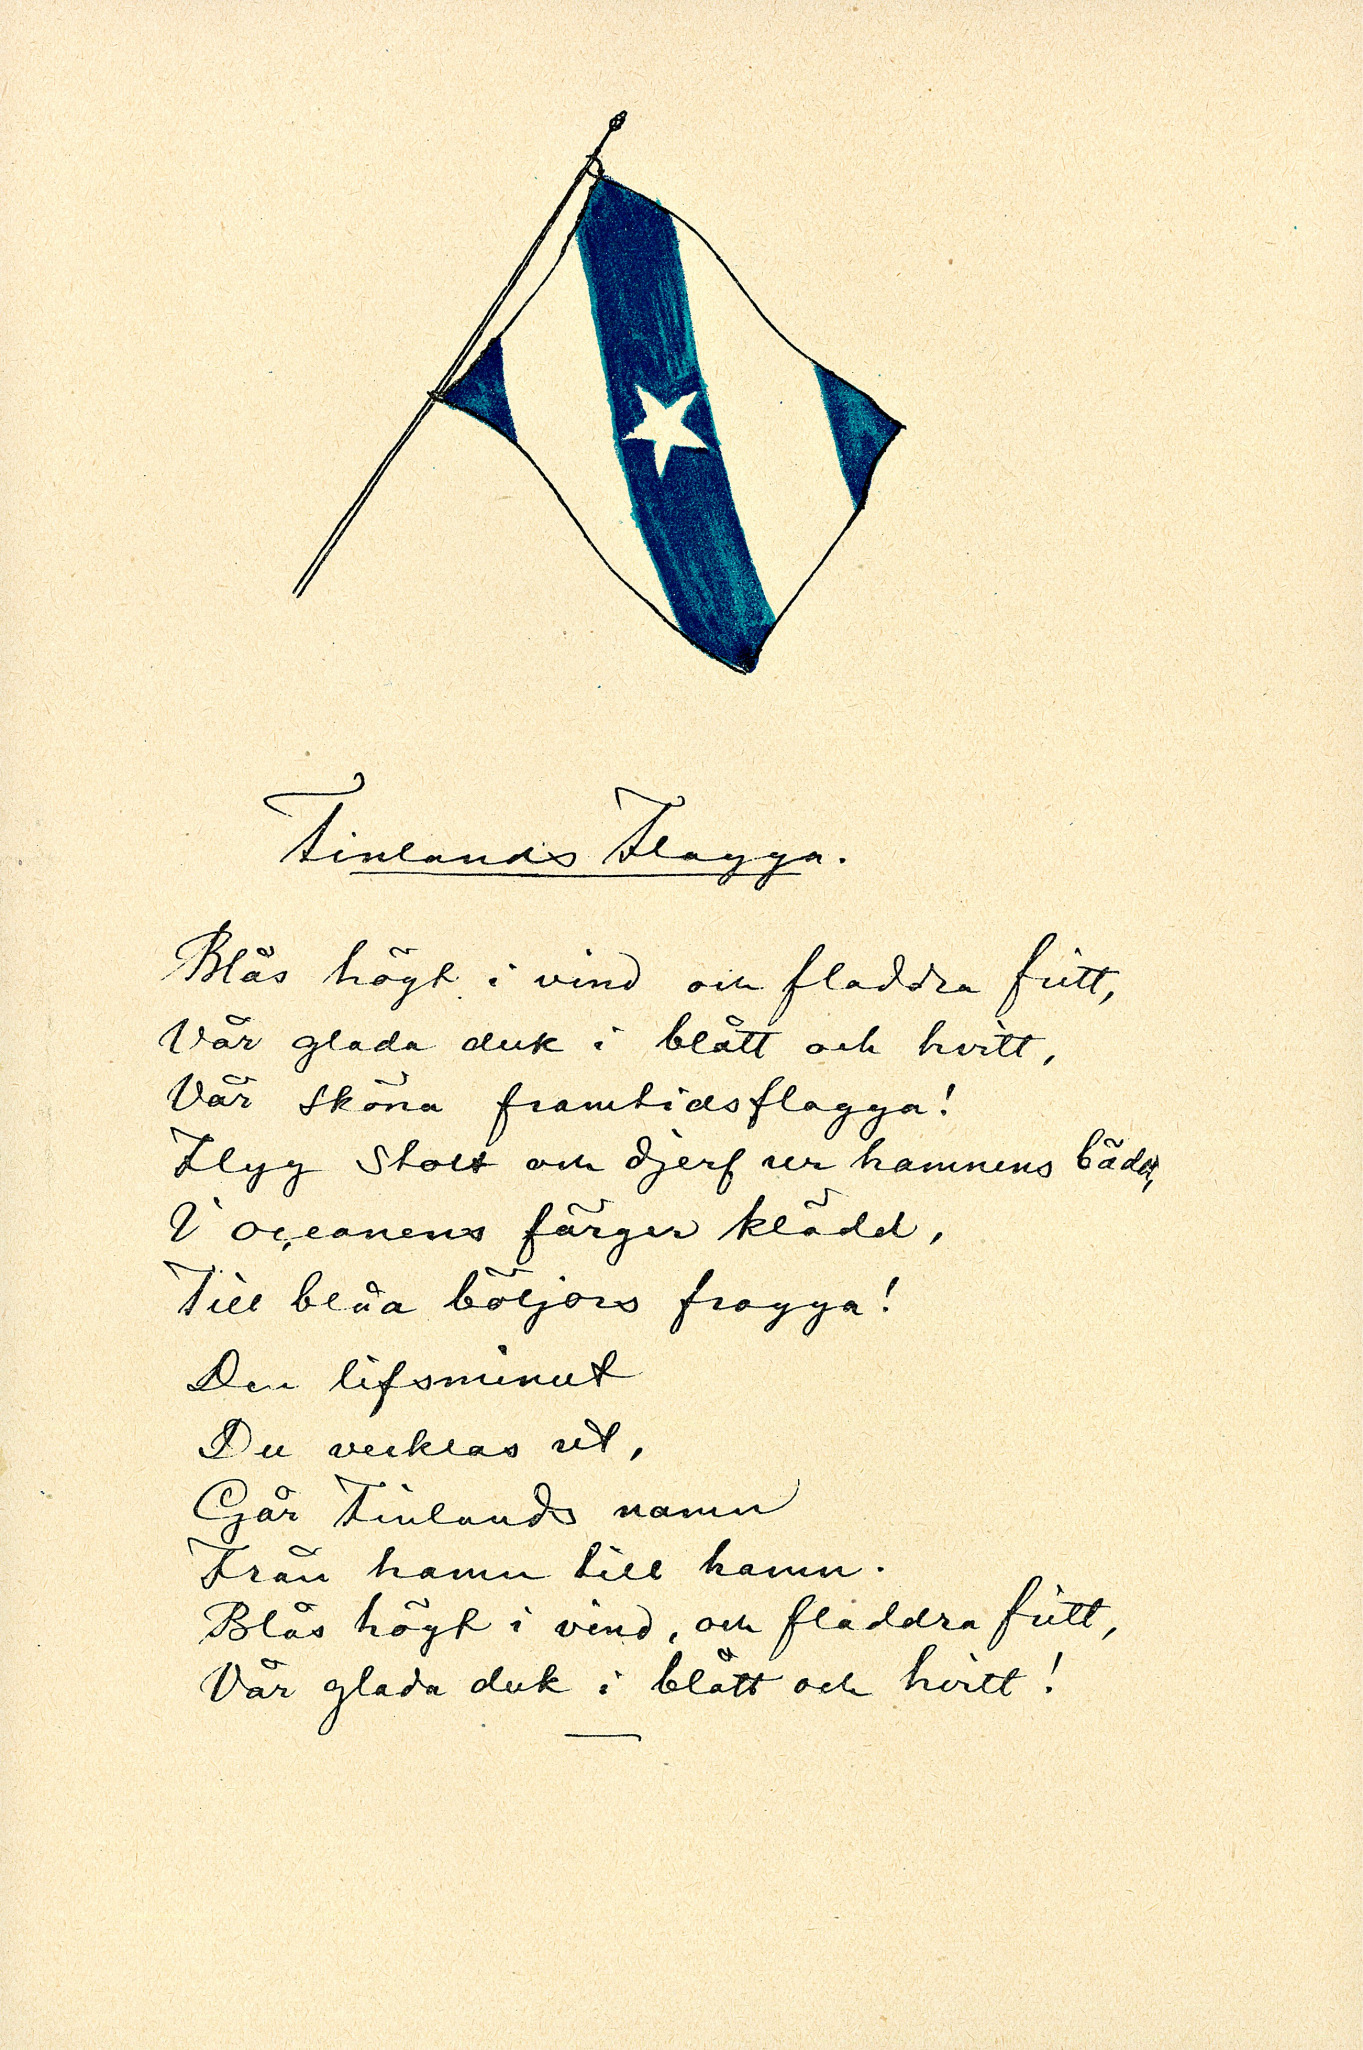 Finlands Flagga.
Blås högt i vind och fladdra fritt,
Vår glada duk i blått och hvitt,
Vår sköna framtidsflagga!
Flyg stolt och djerf ur hamnens bädd,
I oceanens färger klädd,
Till blåa böljors fragga!
Den lifsminut
Du vecklas ut,
Går Finlands namn
Från hamn till hamn.
Blås högt i vind, och fladdra fritt,
Vår glada duk i blått och hvitt!